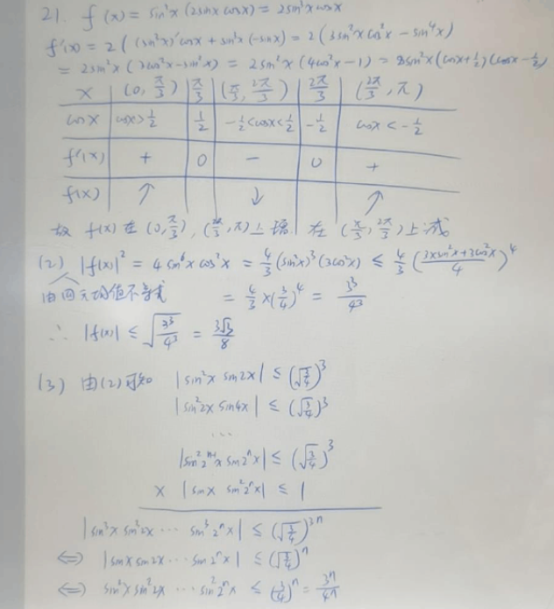 21. f(x) = sin²x(2sinx cosx) = 2sin³x cosx
f'(x) = 2((sin³x)'cosx + sin³x(-sinx)) = 2(3sin²x cos²x - sin⁴x)
= 2sin²x(3cos²x - sin²x) = 2sin²x(4cos²x - 1) = 8sin²x(cosx+½)(cosx-½)
x (0, π/3) π/3 (π/3, 2π/3) 2π/3 (2π/3, π)
cosx cosx>½ ½ -½<cosx<½ -½ cosx<-½
f'(x) + 0 - 0 +
f(x) ↑ ↓ ↑
故 f(x) 在 (0, π/3), (2π/3, π) 上增 在 (π/3, 2π/3) 上减
(2) |f(x)|² = 4sin⁶x cos²x = 4/3 (sin²x)³(3cos²x) ≤ 4/3 (3sin²x+3cos²x / 4)⁴
由四元均值不等式 = 4/3 × (3/4)⁴ = 3³/4³
∴ |f(x)| ≤ √(3³/4³) = 3√3/8
(3) 由(2)可知 |sin²x sin2x| ≤ (√(3/4))³
|sin²2x sin4x| ≤ (√(3/4))³
...
|sin²2ⁿ⁻¹x sin2ⁿx| ≤ (√(3/4))³
× |sinx sin²2ⁿx| ≤ 1
|sin³x sin³2x ··· sin³2ⁿx| ≤ (√(3/4))³ⁿ
⇔ |sinx sin2x ··· sin2ⁿx| ≤ (√(3/4))ⁿ
⇔ sin²x sin²2x ··· sin²2ⁿx ≤ (3/4)ⁿ = 3ⁿ/4ⁿ